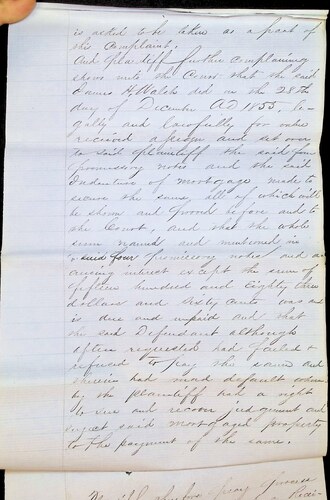 is asked to be taken as a part of
this Complaint.
And plaintiff further complaining
shows unto the Court that the said
James H Welch did on the 28th
day of December AD 1855. le-
gally and lawfully for value
received assign and set over
to said plaintiff the said four
promissory notes and the said
Indenture of mortgage made to
secure the same, all of which will
be shown and proved before and to
the Court, and that the whole
sum named and mentioned in
said four promissory notes and ac
cruing interest except the sum of
fifteen hundred and Eighty three
dollars and sixty cents was and
is due and unpaid and that
the said Defendant although
often requested had failed &
refused to pay the same and
wherein had made default whereby
the plaintiff had a right
to sue and recover judgment and
subject said mortgaged property
to the payment of the same.